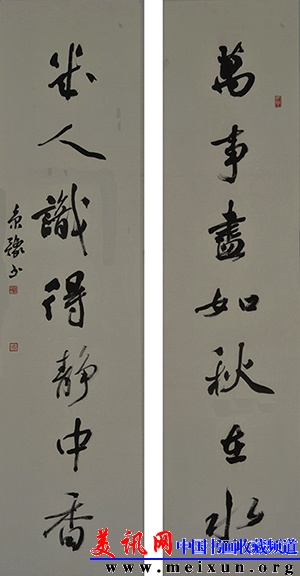 萬事盡如秋在水
幾人識得靜中香
美讯网 中国书画收藏频道
www.meixun.org